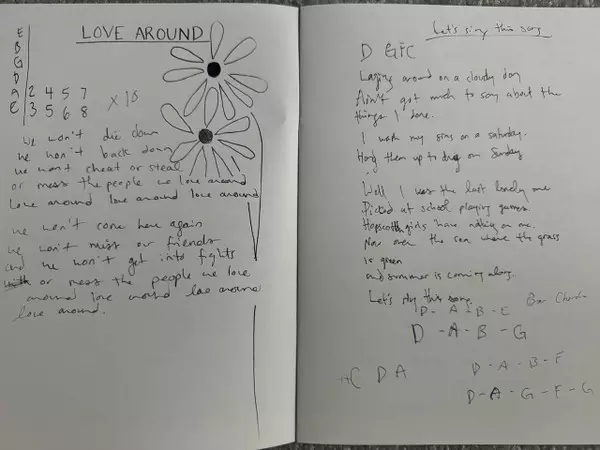 LOVE AROUND
E
B
G
D
A 2 4 5 7
E 3 5 6 8
x 18
We won't die down
We won't back down
we won't cheat or steal
or mess the people we love around
Love around love around love around
we won't come here again
we won't miss our friends
and we won't get into fights
or mess the people we love
around love around love around
love around.
Let's sing this song
D G C
Lazing around on a cloudy day
Ain't got much to say about the
things I done.
I wash my sins on a saturday.
Hang them up to dry on Sunday
Well I was the last lonely one
Picked at school playing games.
Hopscotch girls have nothing on me.
Now over the sea where the grass
is green
and summer is coming along.
Let's sing this song.
D - A - B - E Bar Chords
D - A - B - G
C D A
D - A - B - F
D - A - G - F - G